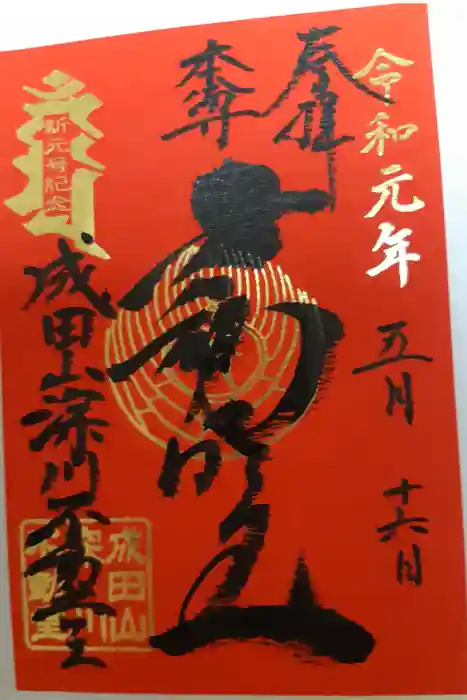 令和元年
五月
十六日
奉拝
本尊
不動明王
新元号記念
成田山深川不動堂
成田山
深川
不動堂